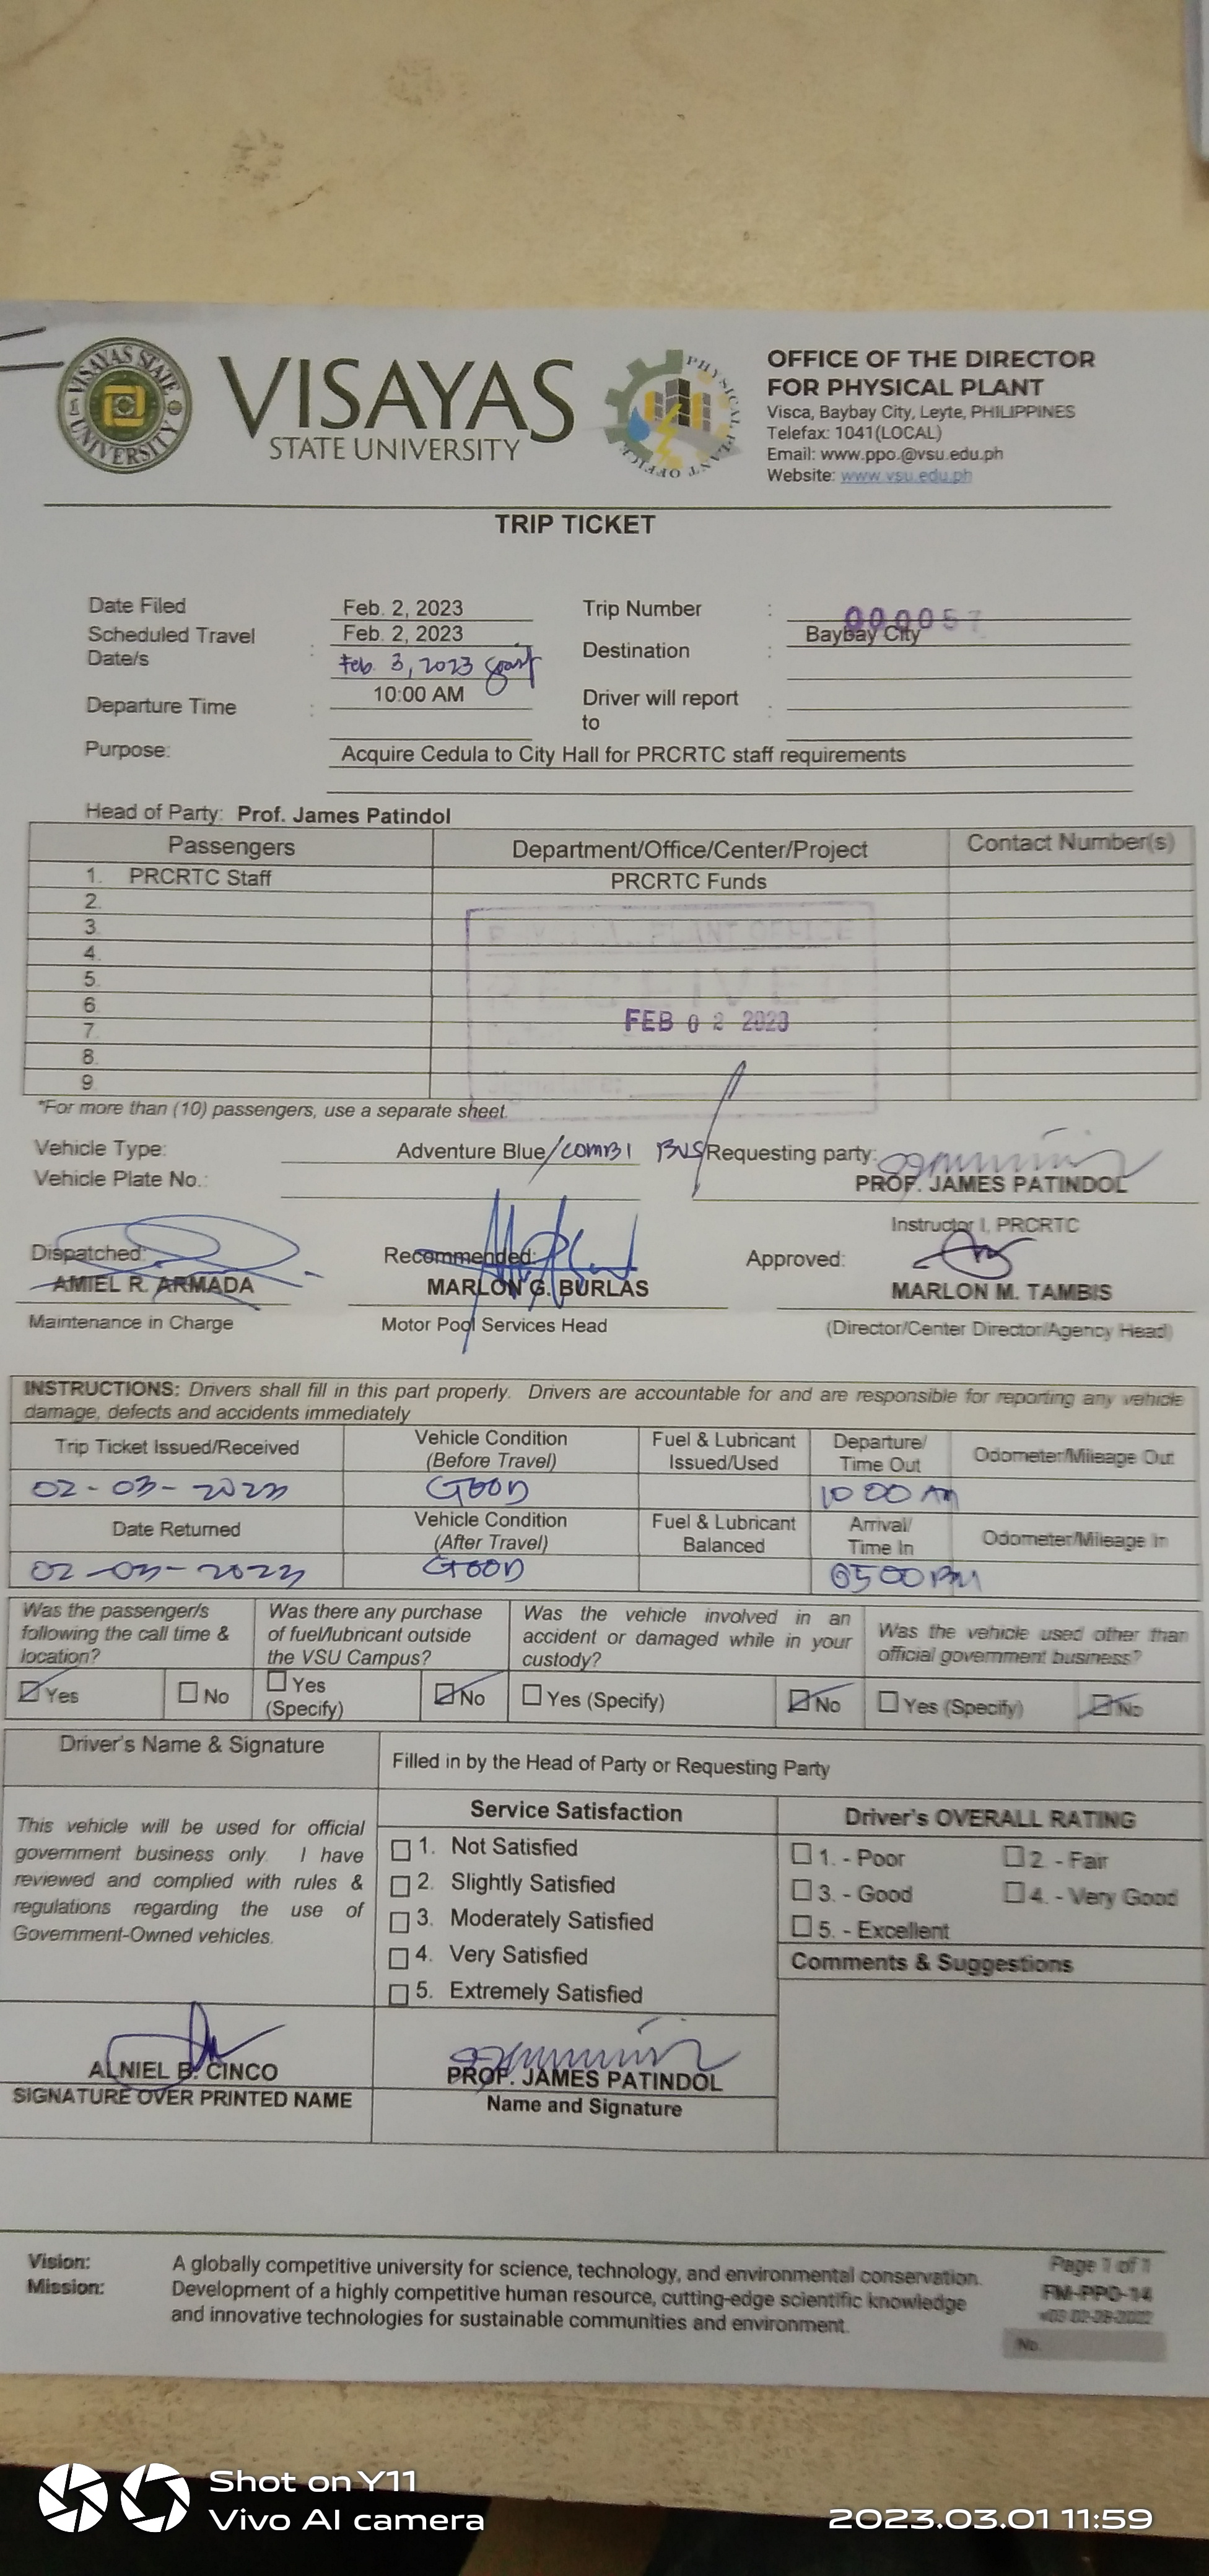 VISAYAS STATE UNIVERSITY
VISAYAS
STATE UNIVERSITY
PHYSICAL PLANT OFFICE
OFFICE OF THE DIRECTOR
FOR PHYSICAL PLANT
Visca, Baybay City, Leyte, PHILIPPINES
Telefax: 1041(LOCAL)
Email: www.ppo.@vsu.edu.ph
Website: www.vsu.edu.ph
TRIP TICKET
Date Filed Feb. 2, 2023 Trip Number : 000057
Scheduled Travel Date/s : Feb. 2, 2023 Destination : Baybay City
Feb. 3, 2023
Departure Time : 10:00 AM Driver will report to :
Purpose: Acquire Cedula to City Hall for PRCRTC staff requirements
Head of Party: Prof. James Patindol
Passengers Department/Office/Center/Project Contact Number(s)
1. PRCRTC Staff PRCRTC Funds
2.
3.
4.
5.
6.
7.
8.
9.
PLANT OFFICE
RECEIVED
FEB 02 2023
*For more than (10) passengers, use a separate sheet.
Vehicle Type: Adventure Blue/COMBI BUS Requesting party:
Vehicle Plate No.: PROF. JAMES PATINDOL
Instructor I, PRCRTC
Dispatched: Recommended: Approved:
AMIEL R. ARMADA MARLON G. BURLAS MARLON M. TAMBIS
Maintenance in Charge Motor Pool Services Head (Director/Center Director/Agency Head)
INSTRUCTIONS: Drivers shall fill in this part properly. Drivers are accountable for and are responsible for reporting any vehicle
damage, defects and accidents immediately
Trip Ticket Issued/Received Vehicle Condition (Before Travel) Fuel & Lubricant Issued/Used Departure/ Time Out Odometer/Mileage Out
02-03-2023 GOOD 10 00 AM
Date Returned Vehicle Condition (After Travel) Fuel & Lubricant Balanced Arrival/ Time In Odometer/Mileage In
02-03-2023 GOOD 05 00 PM
Was the passenger/s following the call time & location? Was there any purchase of fuel/lubricant outside the VSU Campus? Was the vehicle involved in an accident or damaged while in your custody? Was the vehicle used other than official government business?
Yes No Yes (Specify) No Yes (Specify) No Yes (Specify) No
Driver's Name & Signature Filled in by the Head of Party or Requesting Party
Service Satisfaction Driver's OVERALL RATING
This vehicle will be used for official
government business only. I have
reviewed and complied with rules &
regulations regarding the use of
Government-Owned vehicles.
1. Not Satisfied
2. Slightly Satisfied
3. Moderately Satisfied
4. Very Satisfied
5. Extremely Satisfied
1. - Poor 2. - Fair
3. - Good 4. - Very Good
5. - Excellent
Comments & Suggestions
ALNIEL B. CINCO PROF. JAMES PATINDOL
SIGNATURE OVER PRINTED NAME Name and Signature
Vision: A globally competitive university for science, technology, and environmental conservation.
Mission: Development of a highly competitive human resource, cutting-edge scientific knowledge
and innovative technologies for sustainable communities and environment.
Page 1 of 1
FM-PPO-14
No.
Shot on Y11
Vivo AI camera
2023.03.01 11:59